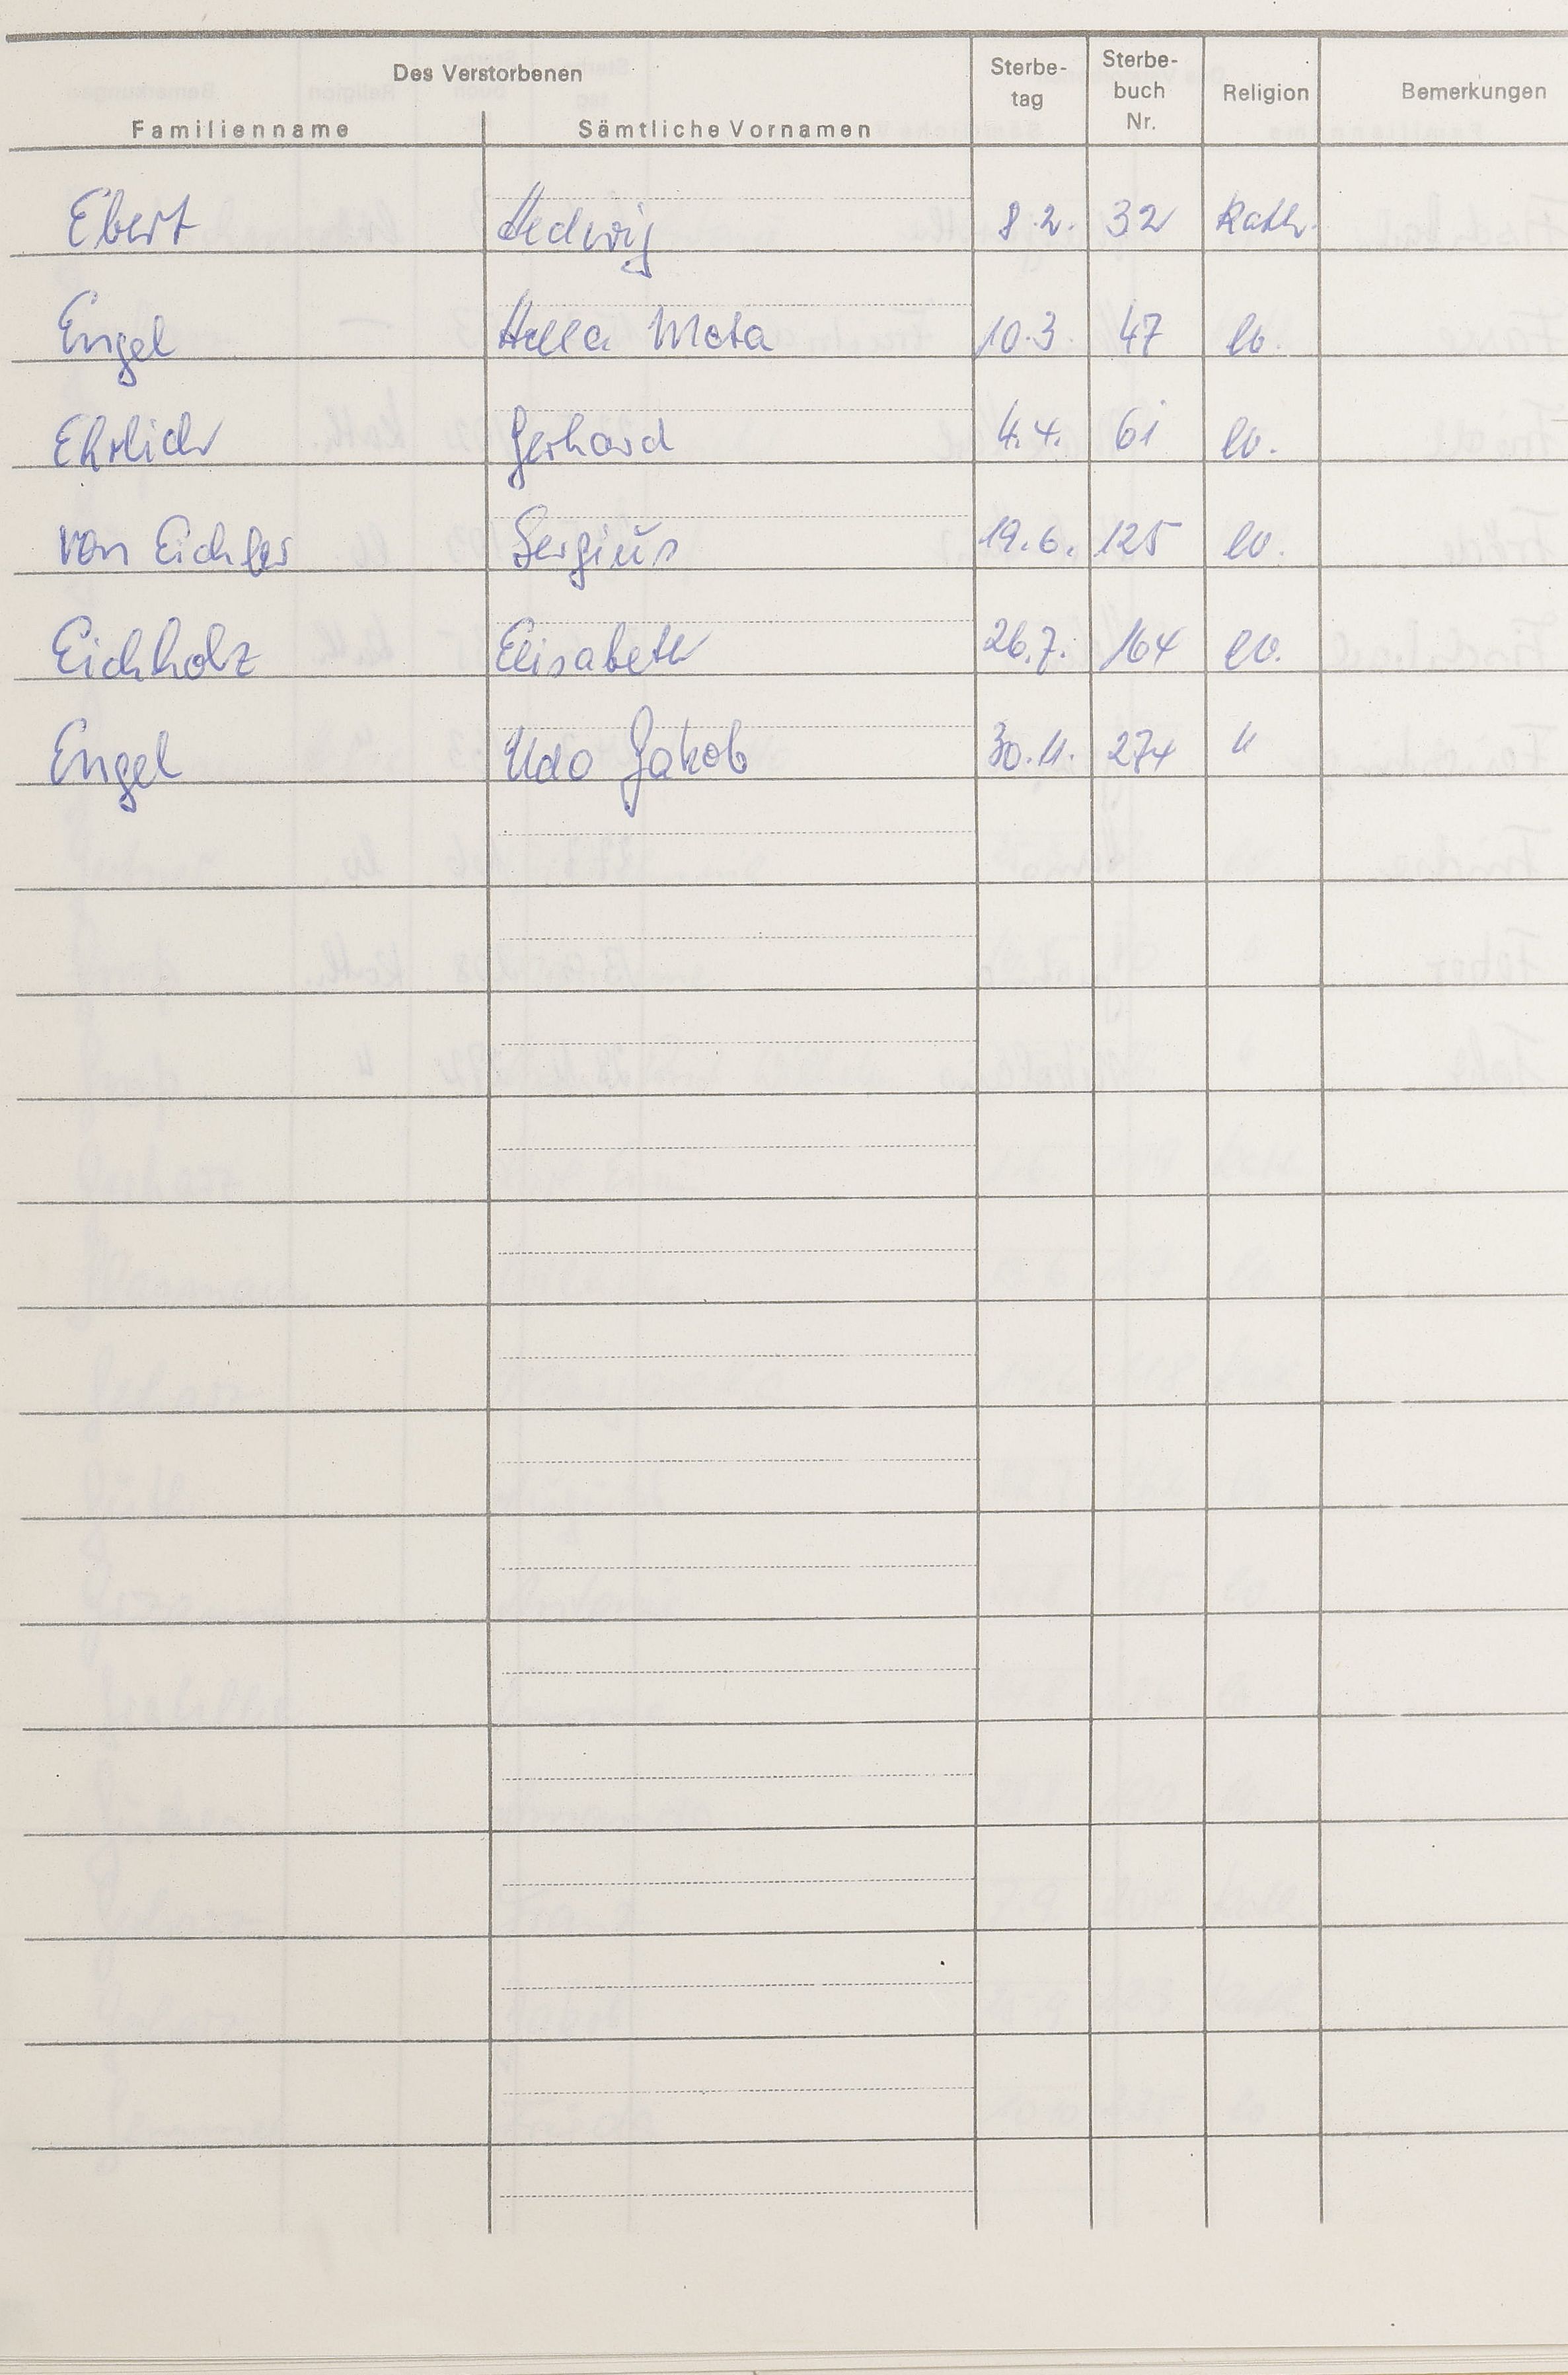 Des Verstorbenen
Familienname Sämtliche Vornamen Sterbe-tag Sterbe-buch Nr. Religion Bemerkungen
Ebert Hedwig 8.2. 32 kath.
Engel Hella Meta 10.3. 47 ev.
Ehrlich Gerhard 4.4. 61 ev.
von Eichler Sergius 19.6. 125 ev.
Eichholz Elisabeth 26.7. 164 ev.
Engel Udo Jakob 30.11. 274 "